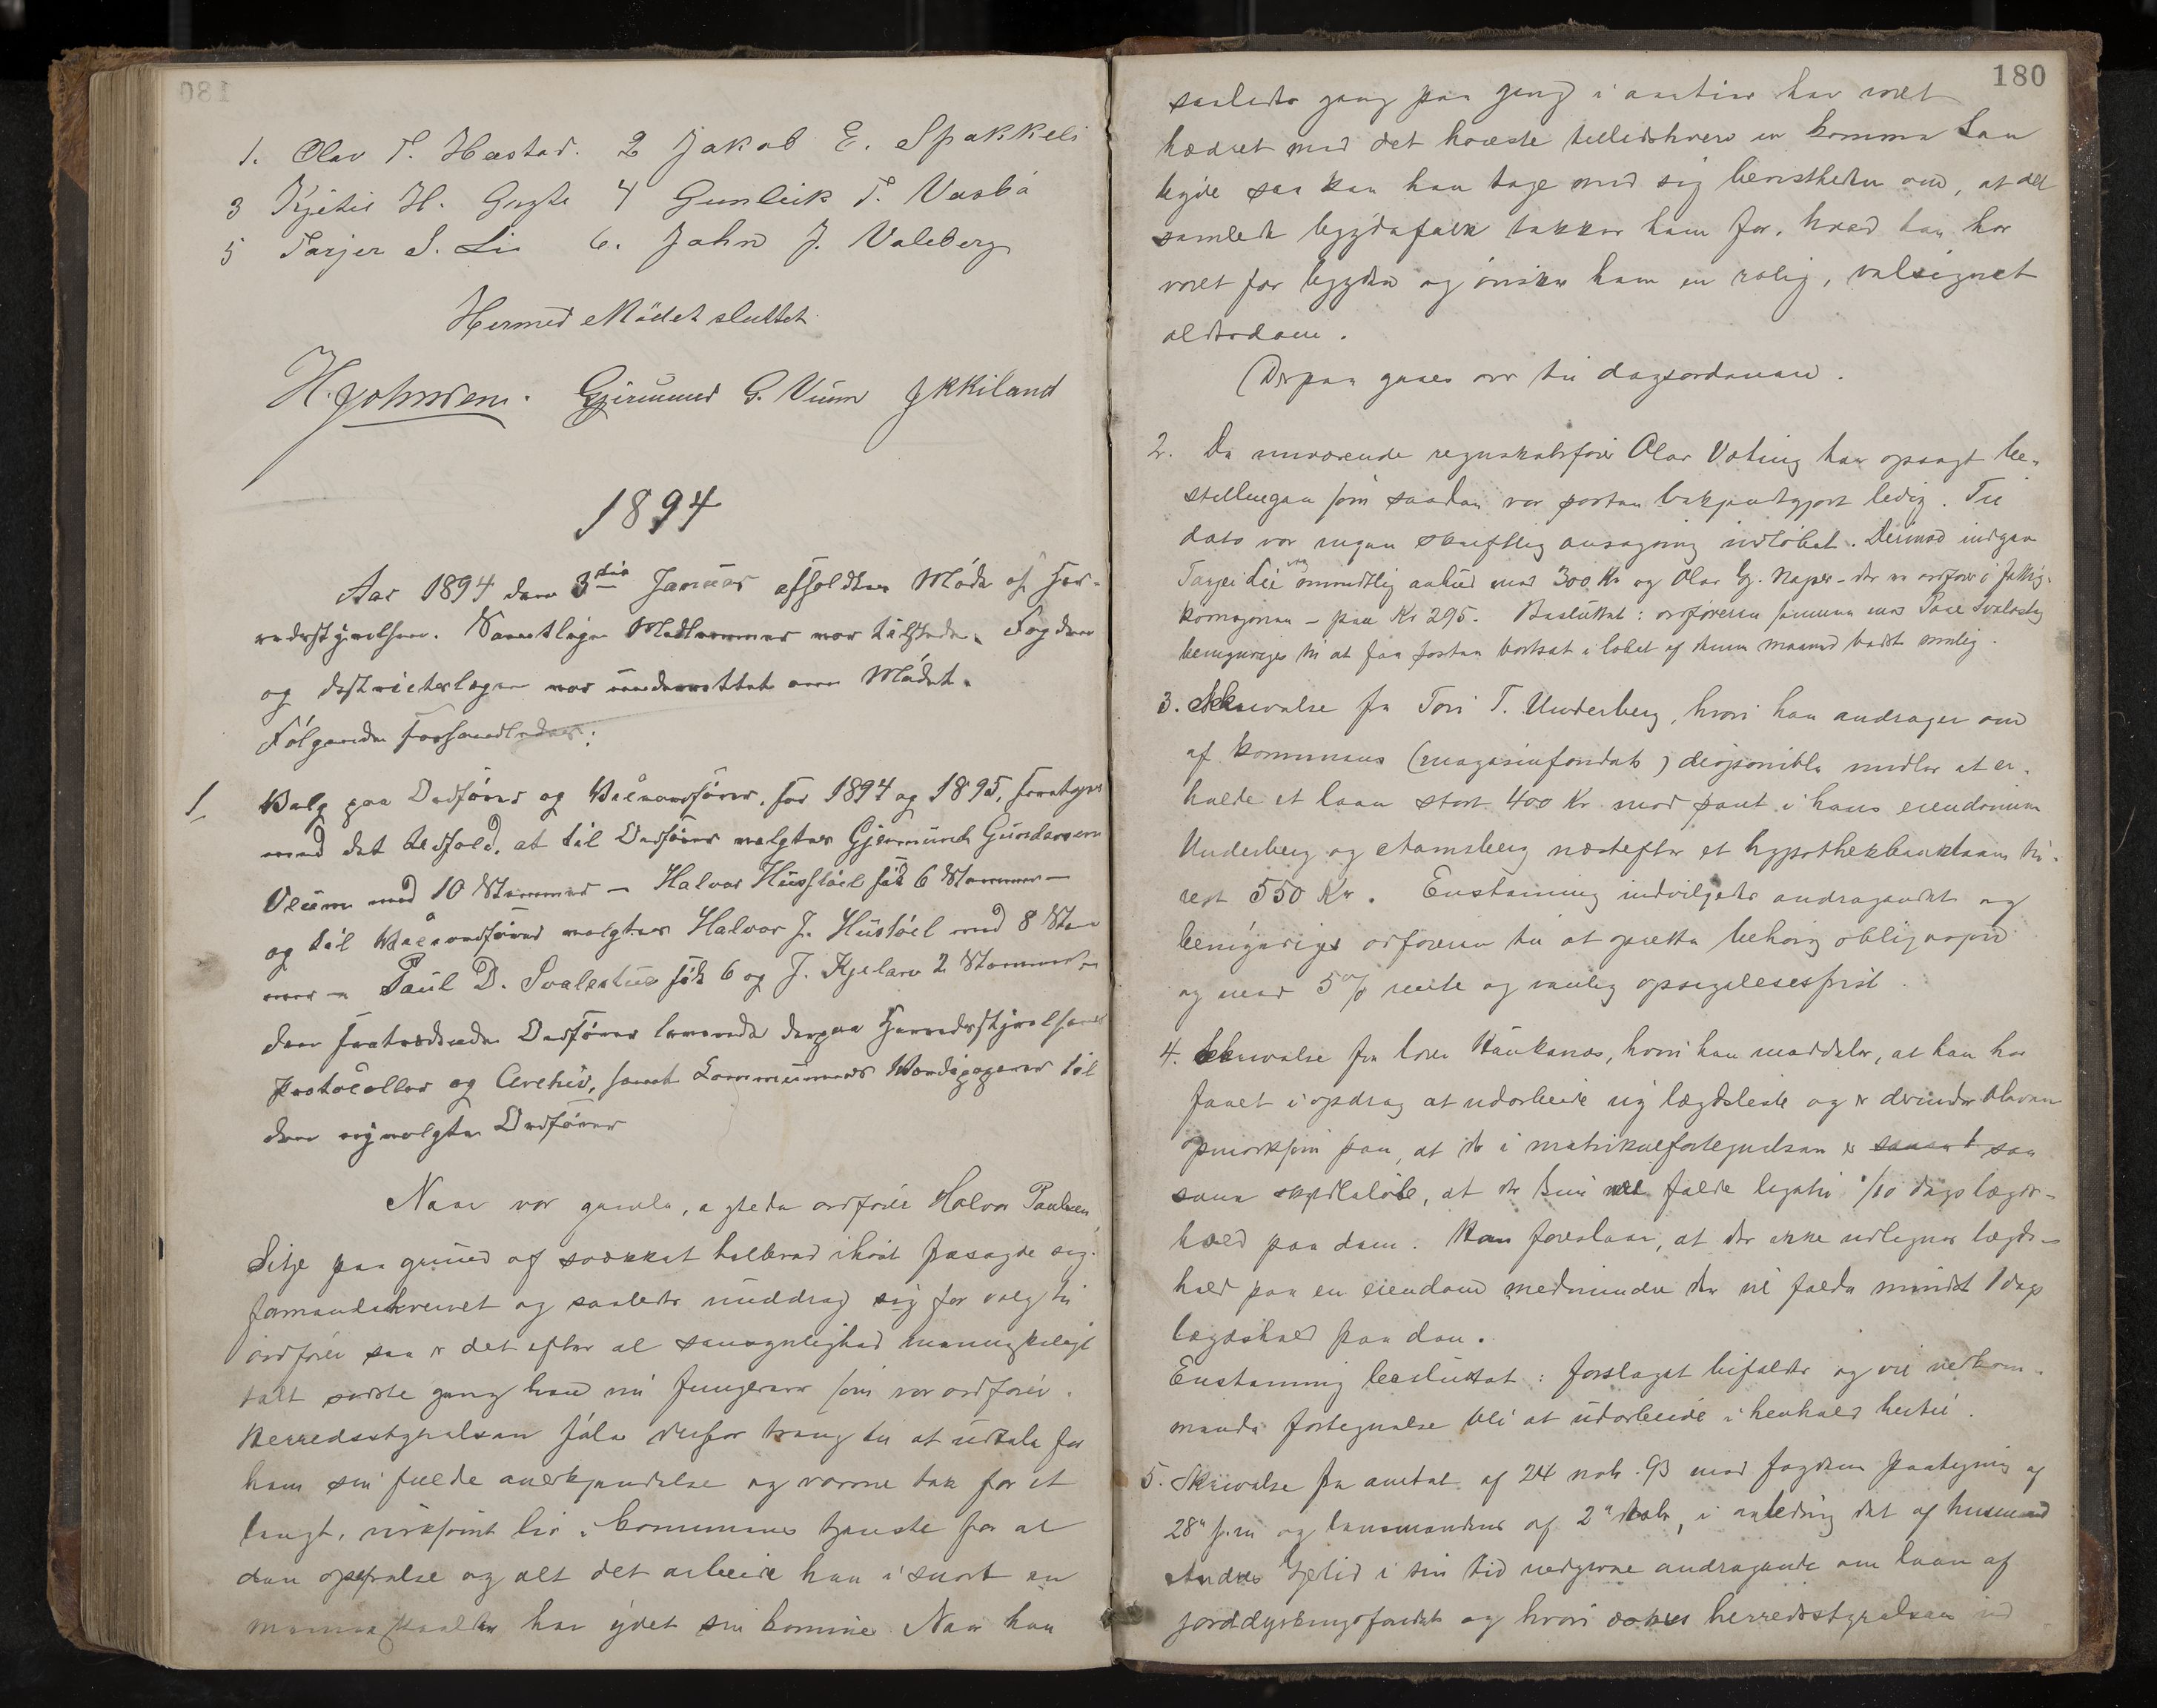 1. Olav T. Hæstad. 2 Jakob E. Spokkeli
3 Kjetil H. Gugte 4 Gunleik T. Vaabö
5 Tarjer S. Li 6. John J. Valeberg
Hermed Mødet sluttet
H. Johnsen. Gjermund G. Vium J K Kiland
1894
Aar 1894 den 3die Januar afholdtes Møde af Her-
redsstyrelsen. Samtlige Medlemmer var tilstede. Fogden
og districtslægen var underrettet om Mødet.
Følgende forhandledes:
1. Valg paa Ordfører og Viceordfører for 1894 og 1895, foretoges
med det Udfald, at til Ordfører valgtes Gjermund Gundersen
Veum med 10 Stemmer – Halvor Hustøil fik 6 Stemmer –
og til Viceordfører valgtes Halvor J. Hustøil med 8 Stem
mer – Paul D. Svalestue fik 6 og J. Kjelare 2 Stemmer.
Den fratrædende Ordfører leverede derpaa Herredsstyrelsens
Protocoller og Archiv, samt Kommunens Værdipapirer til
den nyvalgte Ordfører
Naar vor gamle, agtede ordfører Halvor Paulsen
Litje paa grund af svækket helbred ihøst frasagde sig
formandshvervet og saaledes unddrog sig for valg til
ordfører saa er det efter al sansynlighed menneskeligt
talt sidste gang han nu fungerer som vor ordfører.
Herredsstyrelsen føler derfor trang til at udtale for
ham sin fulde anerkjendelse og varme tak for et
langt, virksomt liv i kommunens tjeneste for al
den opofrelse og alt det arbeide han i snart en
har ydet sin komune. Naar han
180
saaledes gang paa gang i aartier har været
hædret med det høieste tillidshverv en komune kan
byde saa kan han tage med sig bevistheden om, at det
samlede bygdefolk takker ham for, hvad han har
været for bygden og ønsker ham en rolig, velsignet
alderdom.
Derpaa gaaes over til dagsordenen.
2. Da nuværende regnskabsfører Olav Veting har opsagt be-
stillingen som saadan var posten bekjendtgjort ledig. Til
dato var ingen skriftlig ansøgning indløbet. Derimod indgav
Tarjei Lii mundtlig anbud med 300 Kr og Olav Gj. Naper – der er ordfører i fattig-
komisjonen – paa Kr 295. Besluttet: ordføreren sammen med Paul Svalestug
bemyndiges til at faa posten bortsat i løbet af denne maaned bedst mulig.
3. Skrivelse fra Tov T. Underberg, hvori han andrager om
af kommunens (magasinfondets) disponible midler at er-
holde et laan stort 400 Kr mod pant i hans eiendomme
Underberg og Aamsberg næstefter et hypothekbanklaan til-
rest 550 Kr. Enstemmig indvilgedes andragendet og
bemyndiges ordføreren til at oprette behørig obligasjon
og mod 5 % rente og vanlig opsigelsesfrist.
4. Skrivelse fra lærer Haukenæs, hvori han meddeler, at han har
faaet i opdrag at udarbeide ny lægdsliste og er derunder bleven
opmerksom paa, at der i matrikuelfortegnelsen er saa
smaa skyldløbe, at der kun vil falde ligetil 1/10 dags lægds-
hold paa dem. Han foreslaar, at der ikke udlignes lægds-
hold paa en eiendom medmindre der vil falde mindst 1 dags
lægdshold paa den.
Enstemmig besluttet: forslaget bifaldes og vil vedkom-
mende fortegnelse bli at udarbeide i henhold hertil.
5. Skrivelse fra amtet af 24 nov. 93 med fogdens paategning af
28de s.m og lensmandens af 2den, i anledning det af husmand
Andres Gjelid i sin tid indgivne andragende om laan af
jorddyrkningsfondet og hvori herredsstyrelsen